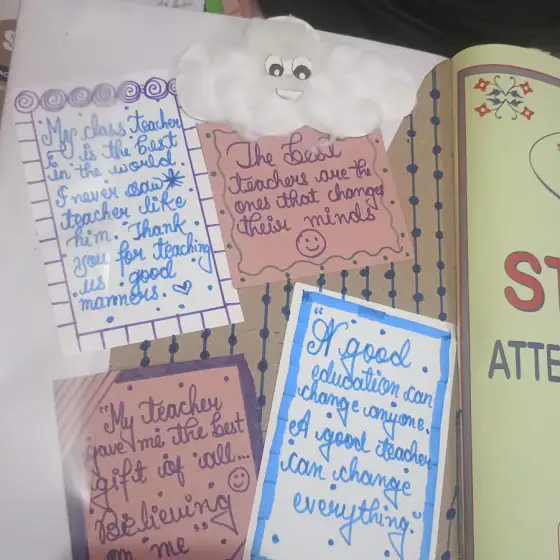 My class teacher
is the best
in the world
I never saw
teacher like
him. Thank
you for teaching
us good
manners.
The best
teachers are the
ones that change
their minds
"My teacher
gave me the best
gift of all...
Believing
on me"
"A good
education can
change anyone.
A good teacher
can change
everything."
ST
ATTE